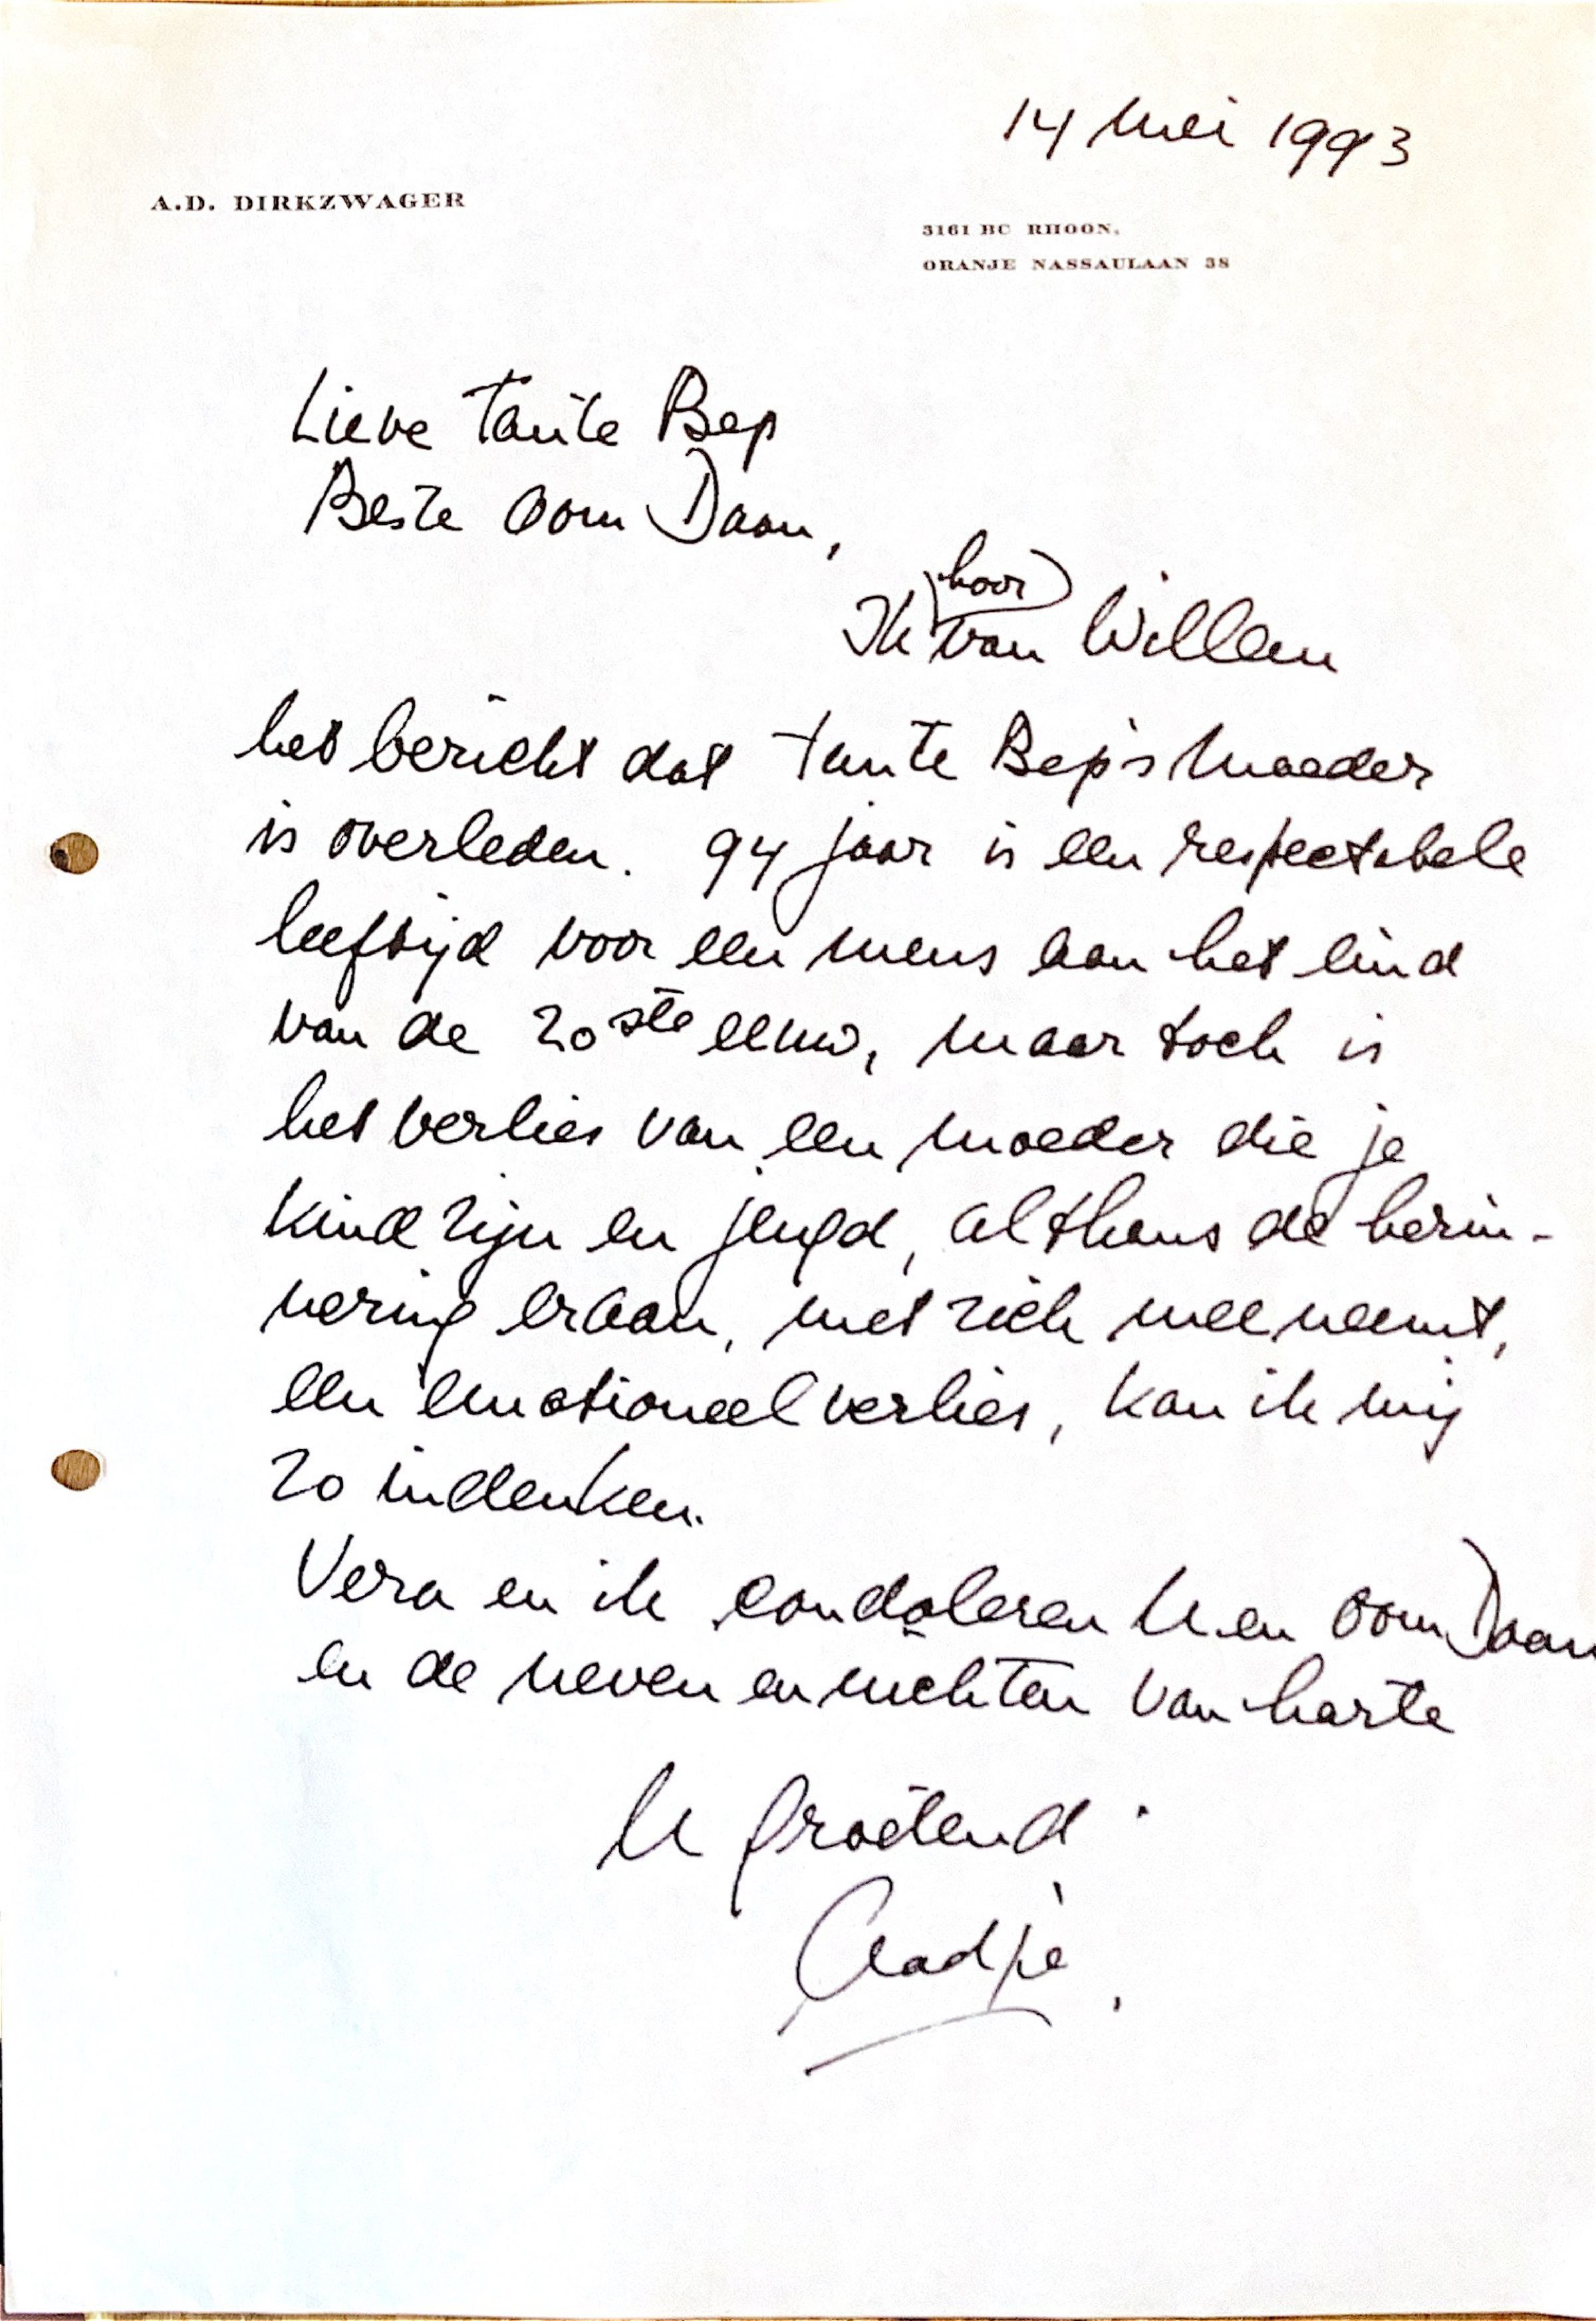 14 mei 1993
A.D. DIRKZWAGER
3161 BC RHOON,
ORANJE NASSAULAAN 38
Lieve tante Bep
Beste oom Daan,
hoor
Ik van Willem
het bericht dat tante Bep's moeder
is overleden. 94 jaar is een respectabele
leeftijd voor een mens aan het eind
van de 20ste eeuw, maar toch is
het verlies van een moeder die je
kind zijn en jeugd, althans de herin-
nering eraan, met zich meeneemt,
een emotioneel verlies, kan ik mij
zo indenken.
Vera en ik condoleren U en oom Daan
en de neven en nichten van harte
U groetend
Aadje,